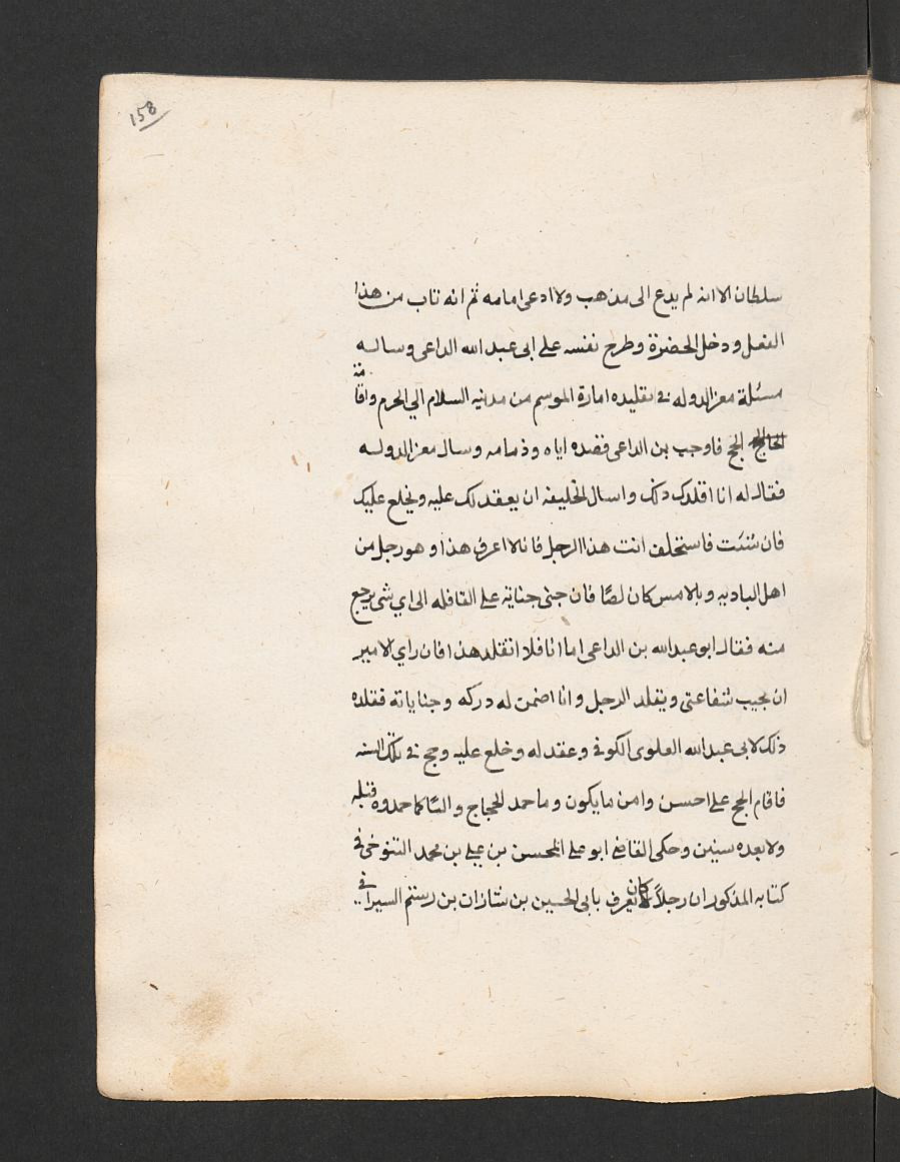 158
سلطان الا انه لم يدع الى مذهب ولا ادعى امامه ثم انه تاب من هذا
الفعل ودخل الحضرة وطرح نفسه على ابى عبد الله الداعى وساله
مسئلة معز الدوله فى تقليده امارة الموسم من مدنيه السلام الي الحرم واقامة
الحج فاوجب بن الداعى قصده اياه وذمامه وسال معز الدوله
فقال له انا اقلدك ذلك واسال الخليفه ان يعقد لك عليه ويخلع عليك
فان شئت فاستخلف انت هذا الرجل فانا لا اعرف هذا وهو رجل من
اهل الباديه وبالامس كان لصًا فان جنى جناية على القافله الى اي شى يرجع
منه فقال ابو عبد الله بن الداعى اما انا فلا اتقلد هذا فان راي الامير
ان يجيب شفاعتى ويقلد الرجل وانا اضمن له دركه وجناياته فقلده
ذلك لابى عبد الله العلوى الكوفى وعقد له وخلع عليه وحج فى تلك السنه
فاقام الحج على احسن وامن ما يكون وما حمد الحجاج والنساكما حمدوه قبله
ولا بعده سنين وحكى القاضى ابو على المحسن بن على بن محمد التنوخى فى
كتابه المذكور ان رجلاً كان يعرف بابى الحسين بن شاذان بن رستم السيرافى